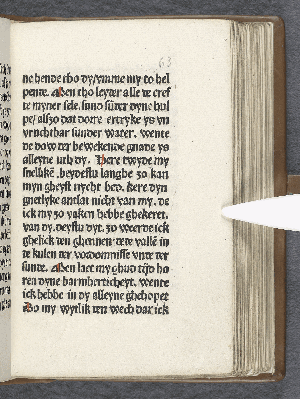 63
ne hende tho dy/ỹmme my to hel
pende. Men tho leyter alle te cref
te myner sele. sund sũter dyne hul
pe/ alʒo dat dorre ertryke ys vn
vruchtbar sunder water. wente
de dow ter bewekende gnade ys
alleyne uth dy. Here twyde my
snellikẽ. beydestu langhe ʒo kan
myn gheyst nycht bed. kere dyn
gnetlyke antlat nicht van my. de
ick my ʒo vaken hebbe ghekeret.
van dy. deystu dyt. ʒo werde ick
ghelick den ghennen. dede vallẽ in
de kulen ter vordomnisse vnte ter
sunte. Men laet my ghud tijd ho
ren dyne barmherticheyt. wente
ick hebbe in dy alleyne ghehopet
Do my wytlik den wech dar ick